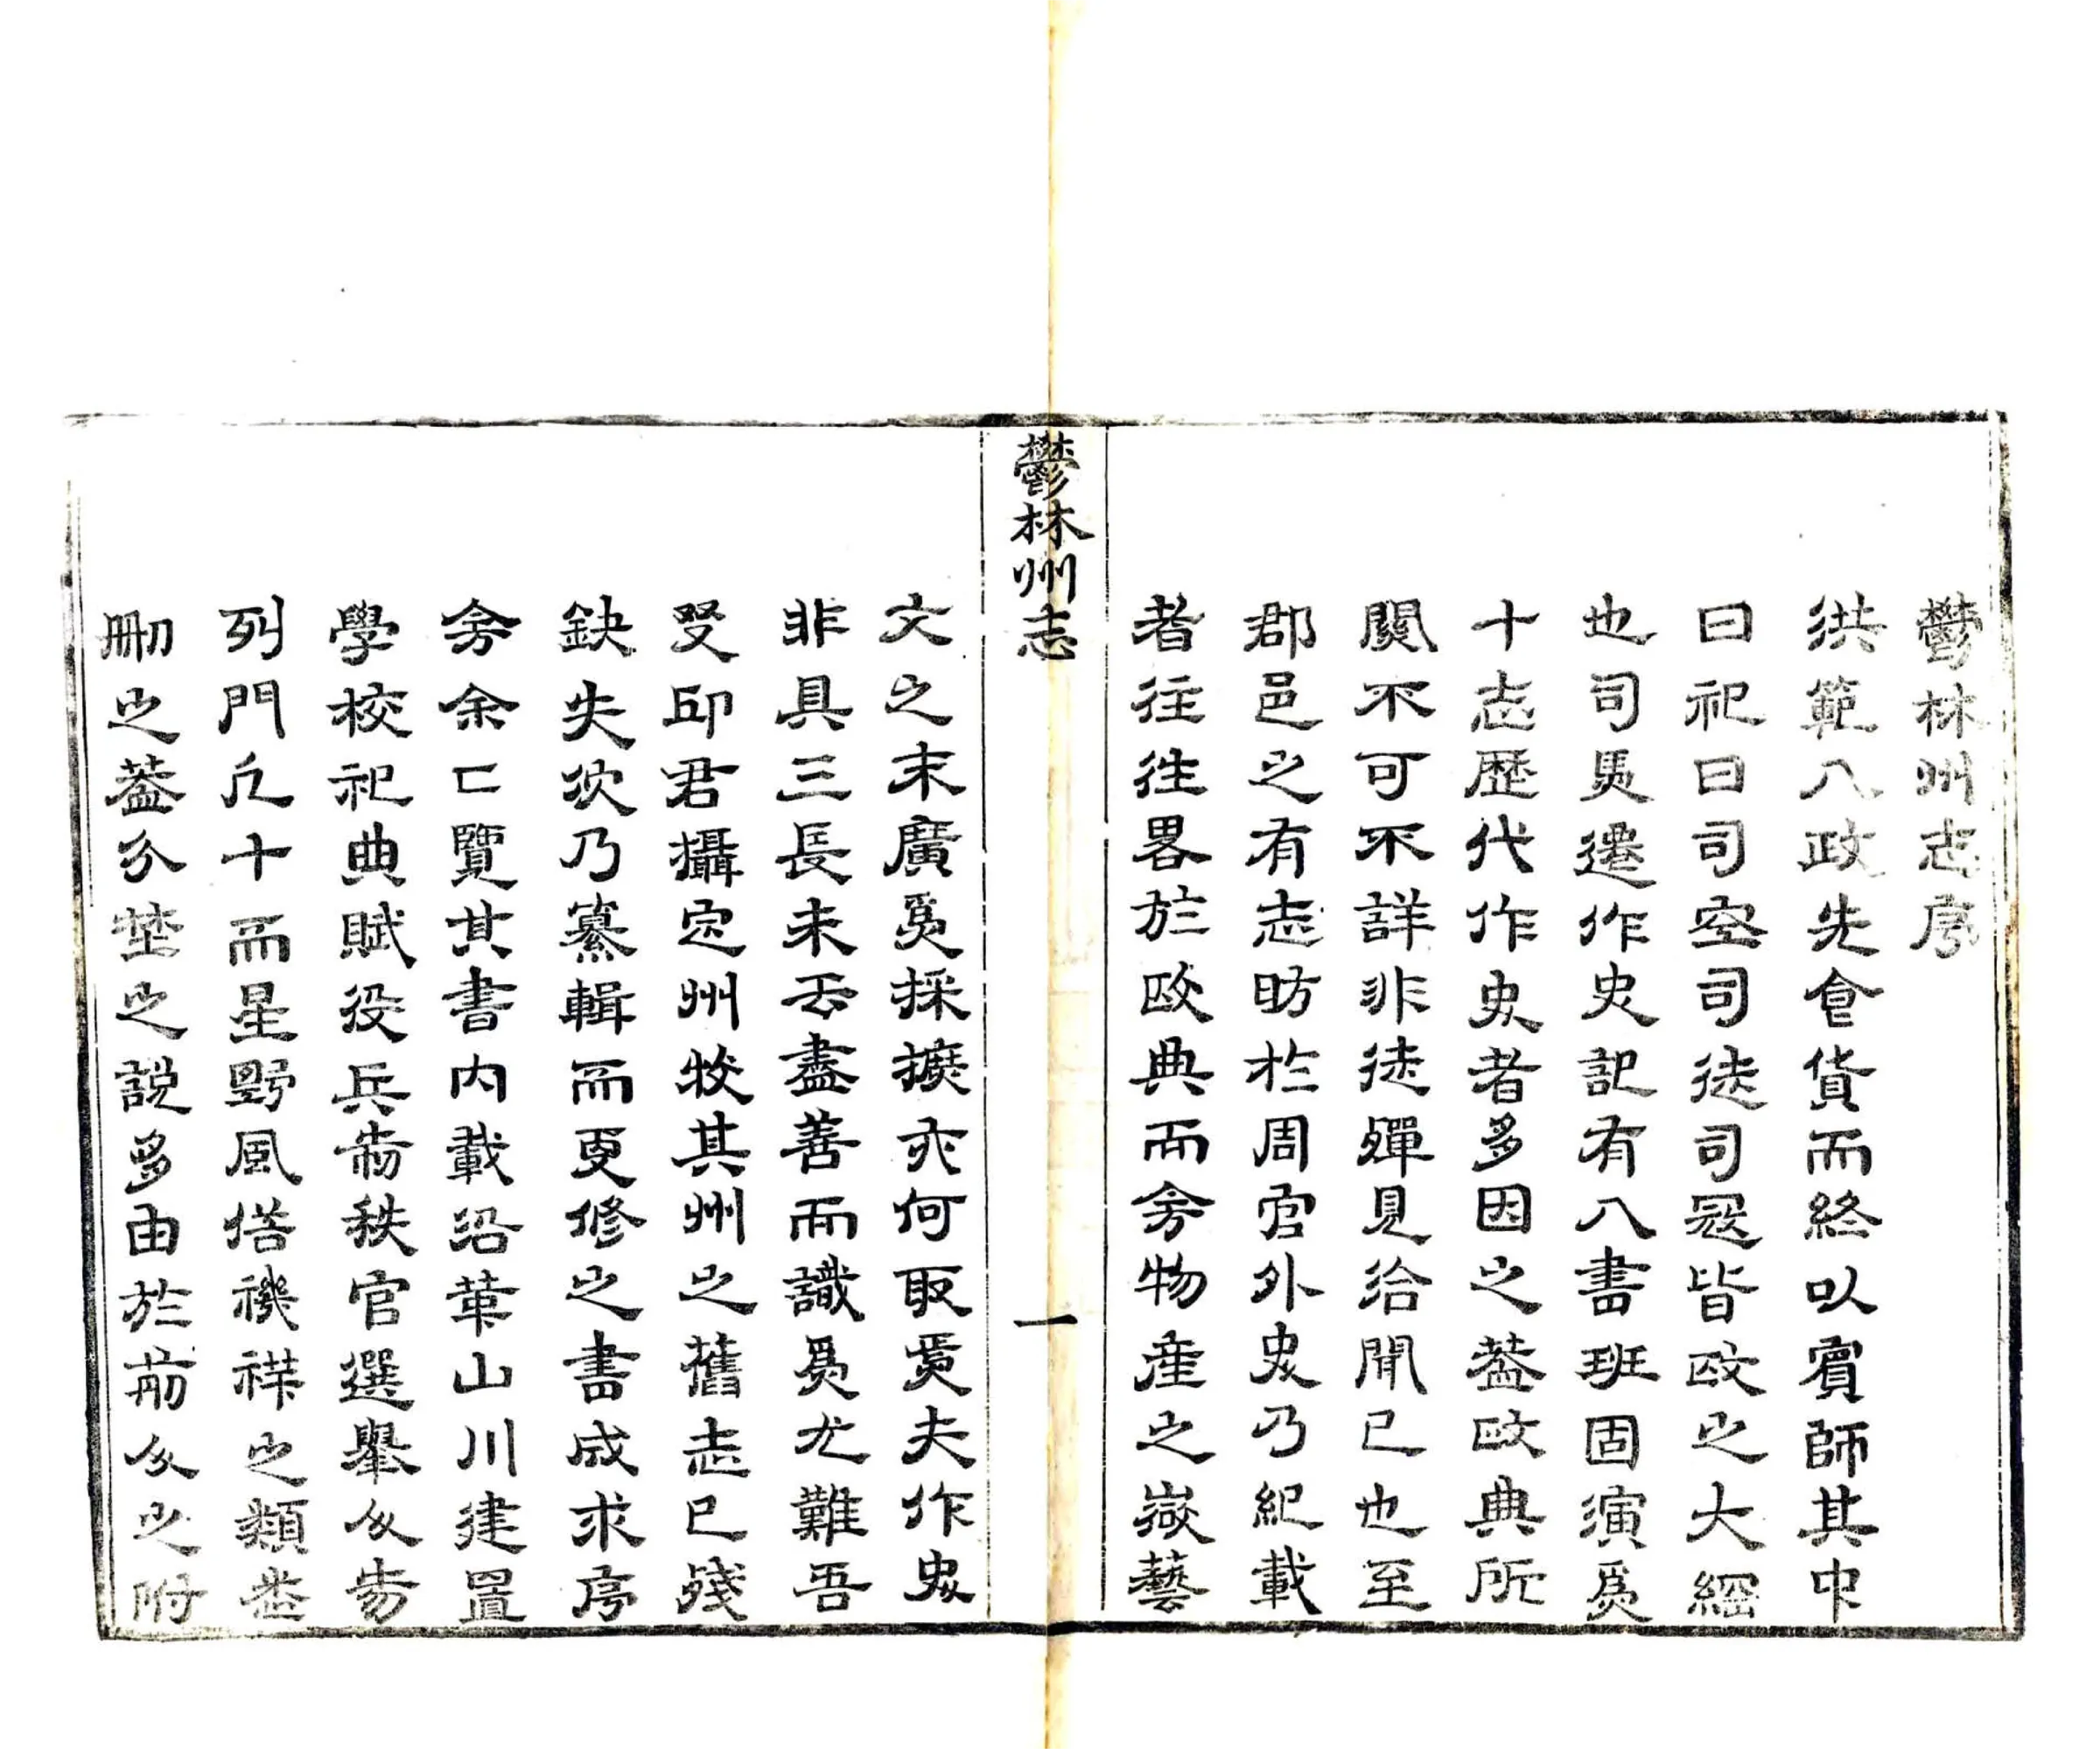 鬱林州志序
洪範八政先食貨而終以賓師其中
曰祀曰司空司徒司寇皆政之大綱
也司馬遷作史記有八書班固演爲
十志歷代作史者多因之葢政典所
關不可不詳非徒殫見洽聞已也至
郡邑之有志昉於周官外史乃紀載
者往往畧於政典而侈物產之嶽藝
鬱林州志
一
文之末廣爲採摭亦何取焉夫作史
非具三長未云盡善而識爲尤難吾
友邱君攝定州牧其州之舊志已殘
缺失次乃纂輯而更修之書成求序
於余亡覽其書內載沿革山川建置
學校祀典賦役兵防秩官選舉人物
列門凡十而星野風俗機祥之類悉
刪之葢分埜之說多由於前人之附